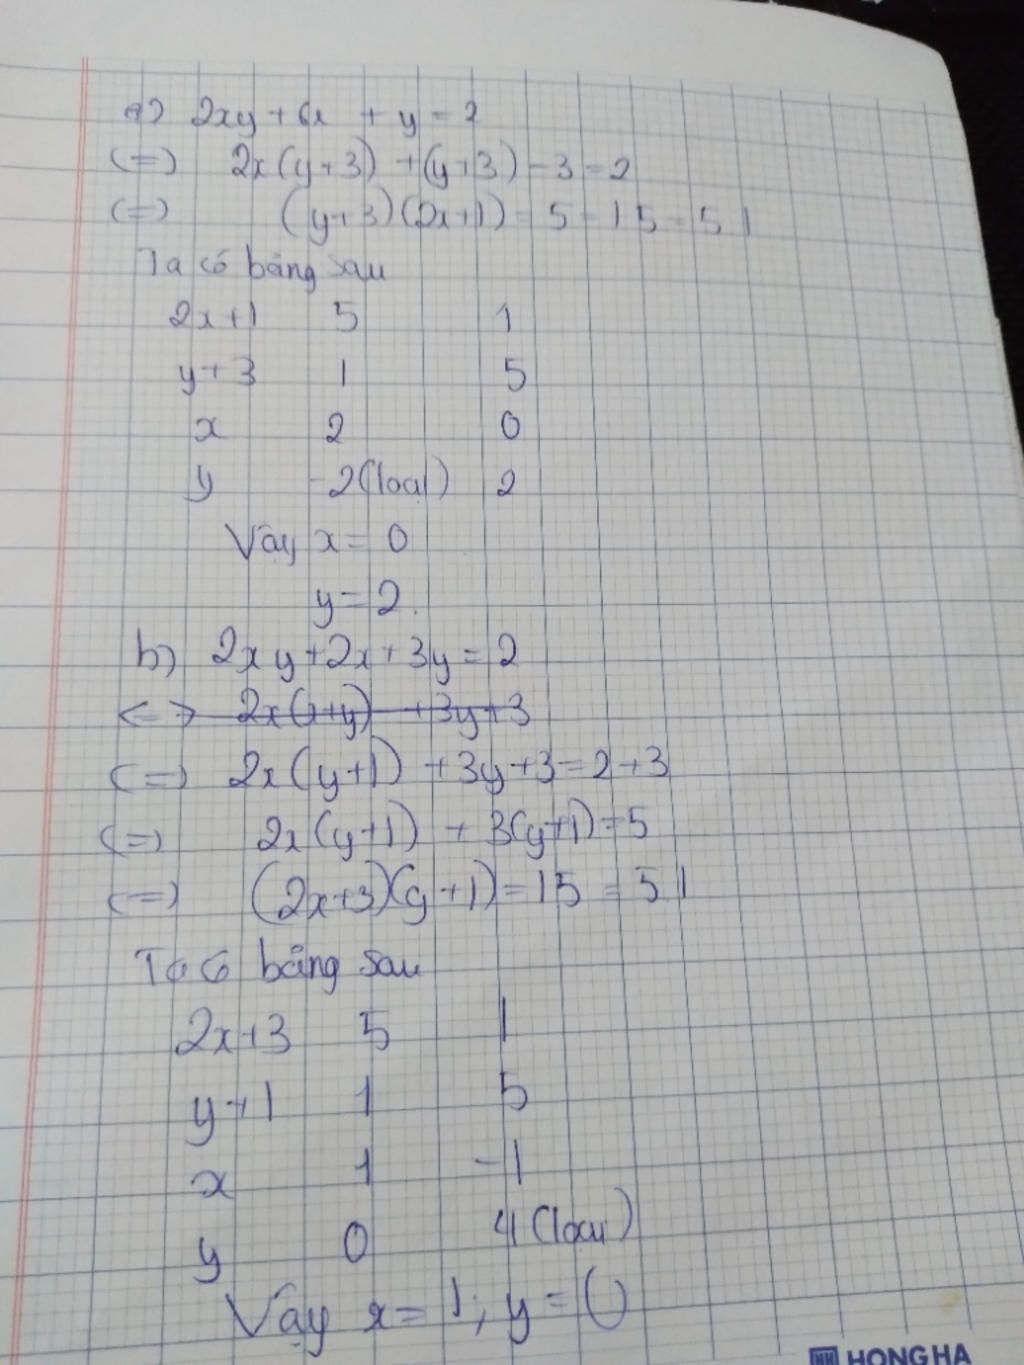 a) 2xy + 6x + y = 2
(=) 2x(y+3) + (y+3) - 3 = 2
(=) (y+3)(2x+1) = 5 = 1 5 = 5 1
Ta có bảng sau
2x+1 5 1
y+3 1 5
x 2 0
y -2 (loại) 2
Vậy x = 0
y = 2.
b) 2xy + 2x + 3y = 2
<=> 2x(1+y) + 3y + 3
(=) 2x(y+1) + 3y + 3 = 2 + 3
(=) 2x(y+1) + 3(y+1) = 5
(=) (2x+3)(y+1) = 15 = 5 1
Ta có bảng sau
2x+3 5 1
y+1 1 5
x 1 -1
y 0 4 (loại)
Vậy x = 1; y = 0
HONG HA